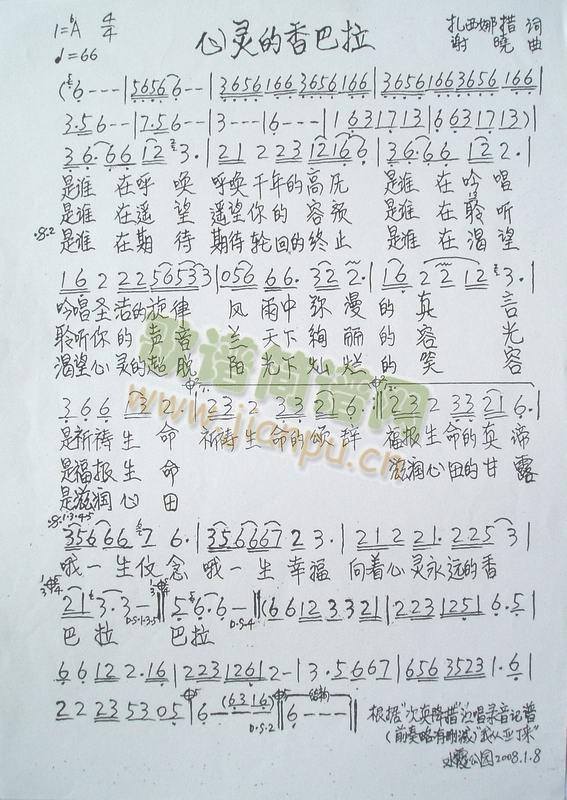 1=♭A 4/4
♩=66
心灵的香巴拉
扎西娜措 词
谢 晓 曲
(6---|5656 6--|3656166 3656166|3656166 3656 166|
3·5 6--|7·5 6--|3---|6---|1 6 3 1 7 1 3|6 6 3 1 7 1 3)|
3 6·6 6 1 2 3·|2 1 2 2 3 1 2 1 6 6|3 6·6 6 1 2 2·|
是谁 在呼 唤 呼唤千年的高历 是谁 在吟 唱
是谁 在遥 望 遥望你的 容颜 是谁 在聆 听
是谁 在期 待 期待轮回的终止 是谁 在渴 望
1 6 2 2 2 5 6 5 3 3|0 5 6 6 6· 3 2 2·|1 6 2 2 1 2 3·|
吟唱圣洁的旋律 风 雨中 弥 漫 的 真 言
聆听你的 声音 兰 天下 绚 丽 的 容 光
渴望心灵的超脱 阳 光下 灿 烂 的 笑 容
3 6 6 1 3 2|2 3 2 3 3 2 1 6·:‖2 3 2 3 3 2 1 6·|
是祈祷 生 命 祈祷生 命的颂辞 福报生命的真谛
是福报 生 命 滋润心田的甘露
是滋润 心 田
3 5 6 6 6 7 6·|3 5 6 6 6 7 2 3·|2 1 2 2 1· 2 2 5 3|
哦一 生 仪 念 哦一 生 幸福 向着心灵永远的香
2 1 3·3 -‖5 6·6 -‖(6 6 1 2 3 3 2 1|2 2 3 1 2 5 1 6·5|
巴 拉 巴 拉
6 6 1 2 2·1 6|2 2 3 1 2 6 1 2 -|3·5 6 6 7|6 5 6 3 5 2 3 1·6|
2 2 2 3 5 3 0 5|6 - (6 3 1 6)‖6 - - -‖
D.S.2
根据"次真降措"演唱录音记谱
(前奏略有删减)"我从亚丁来"
公园2008.1.8
www.jianpu.cn